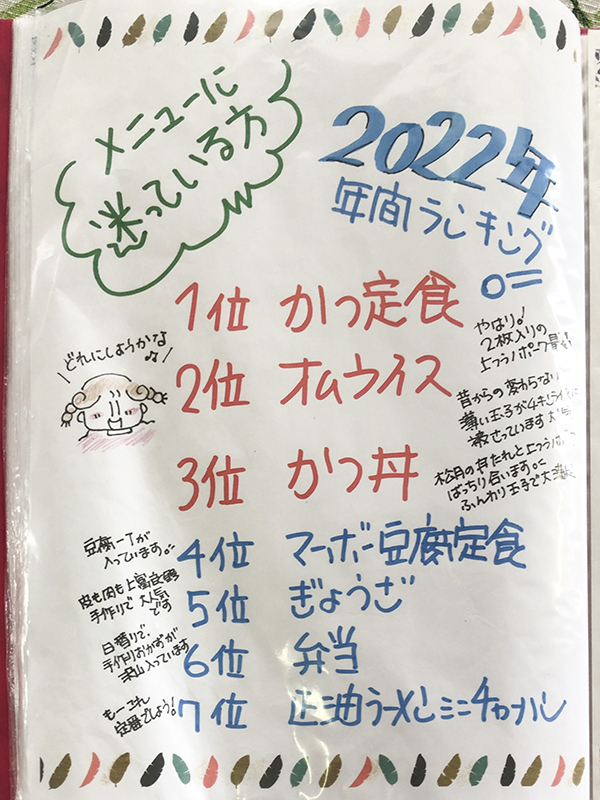 メニューに
迷っている方
2022年
年間ランキング
どれにしようかな♪
1位 かつ定食
やはり!
2枚入りの
上フラノポーク
2位 オムライス
昔からの変わらない
薄い玉子が
被さっています
3位 かつ丼
松月の丼たれと上フラノ
ばっちり合います。
ふんわり玉子で
4位 マーボー豆腐定食
豆腐一丁が
入っています。
5位 ぎょうざ
皮も肉も上富良野
手作りで大人気
です
6位 弁当
日替りで、
手作りおかずが
沢山入っています
7位 正油ラーメンミニチャーハン
もーこれ
定番でしょう!